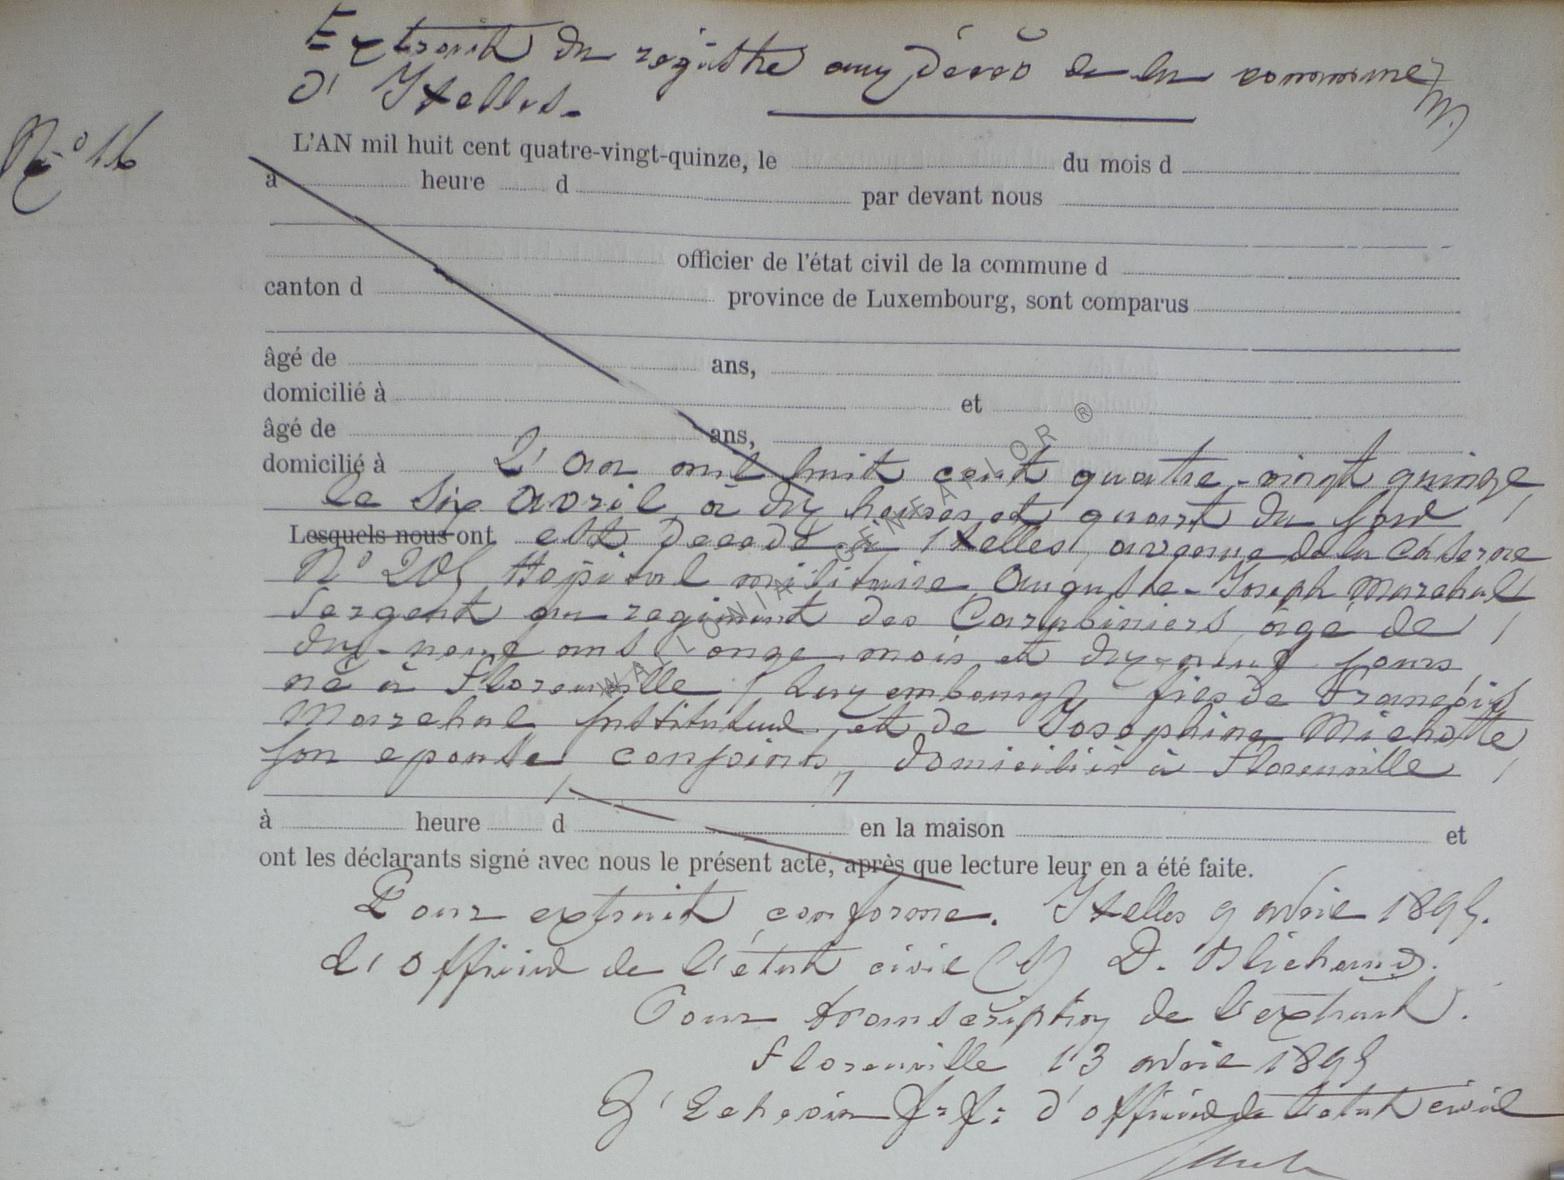 Extrait du registre aux décès de la commune
d'Ixelles.
N° 16
L'AN mil huit cent quatre-vingt-quinze, le du mois d
à heure d par devant nous
officier de l'état civil de la commune d
canton d province de Luxembourg, sont comparus
âgé de ans,
domicilié à et
âgé de ans,
domicilié à L'an mil huit cent quatre-vingt quinze,
le six avril à dix heures et quart du soir
Lesquels nous ont est décédé à Ixelles, avenue de la Caserne
N° 205 Hopital militaire, Auguste-Joseph Marchal
Sergent au regiment des Carabiniers, âgé de
dix-neuf ans onze mois et dix-neuf jours
né à Florenville (Luxembourg) fils de François
Marchal Instituteur, et de Josephine Michotte
son epouse, conjoints, domiciliés à Florenville,
à heure d en la maison et
ont les déclarants signé avec nous le présent acte, après que lecture leur en a été faite.
Pour extrait conforme. Ixelles 9 avril 1895.
L'officier de l'état civil (S)
Pour transcription de l'extrait.
Florenville 13 avril 1895
L'Echevin f:f: d'officier de l'état civil
WALLONIA GENEALOR ®